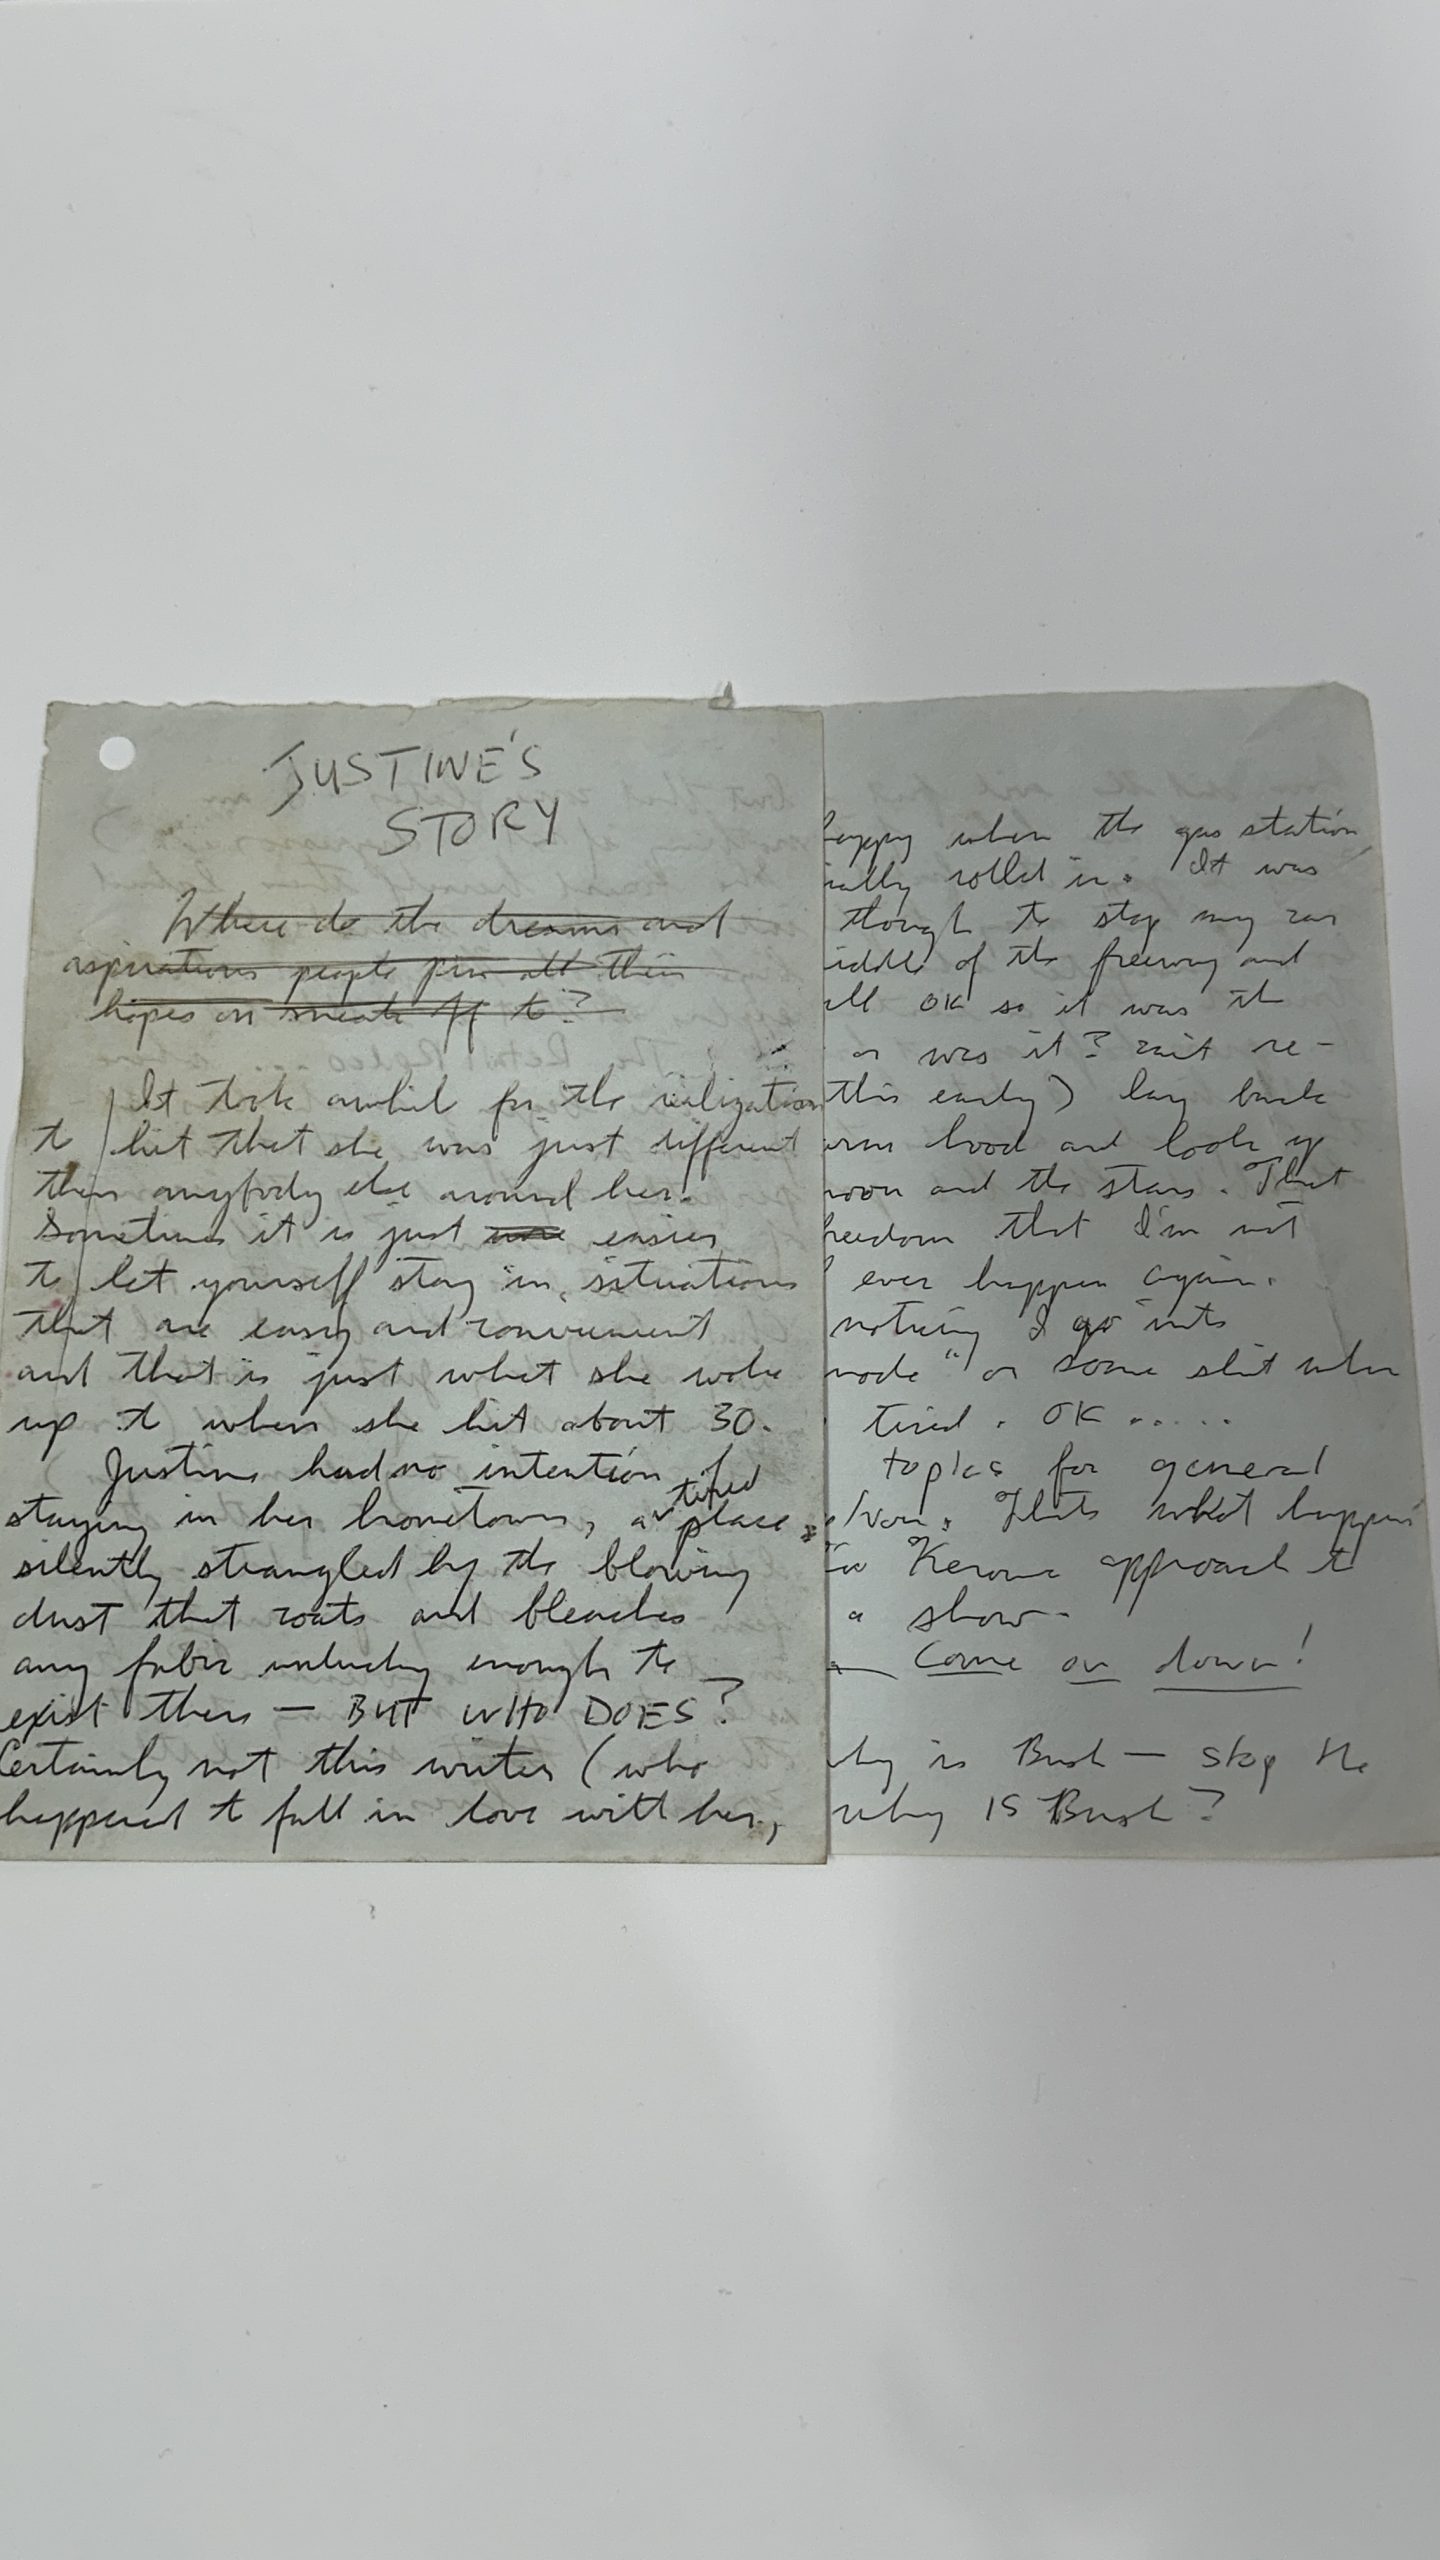 JUSTINE'S
STORY
Where do the dreams and
aspirations people pin all their
hopes on sneak off to?
It took awhile for the realization
to hit that she was just different
then anybody else around her.
Sometimes it is just easier
to let yourself stay in situations
that are easy and convenient
and that is just what she woke
up to when she hit about 30.
Justine had no intention of
staying in her hometown, a tired place
silently strangled by the blowing
dust that coats and bleaches
any fabric unlucky enough to
exist there — BUT WHO DOES?
Certainly not this writer (who
happened to fall in love with her,
happy when the gas station
rolled in. It was
though to stop my car
of the freeway and
OK so it was the
or was it? can't re-
this early) lay back
hood and look up
and the stars. That
that I'm not
ever happen again.
nothing I go into
mode" or some shit when
tired. OK .....
topics for general
Thats what happens
approach to
a show-
come on down!
is Bush — stop the
why IS Bush?